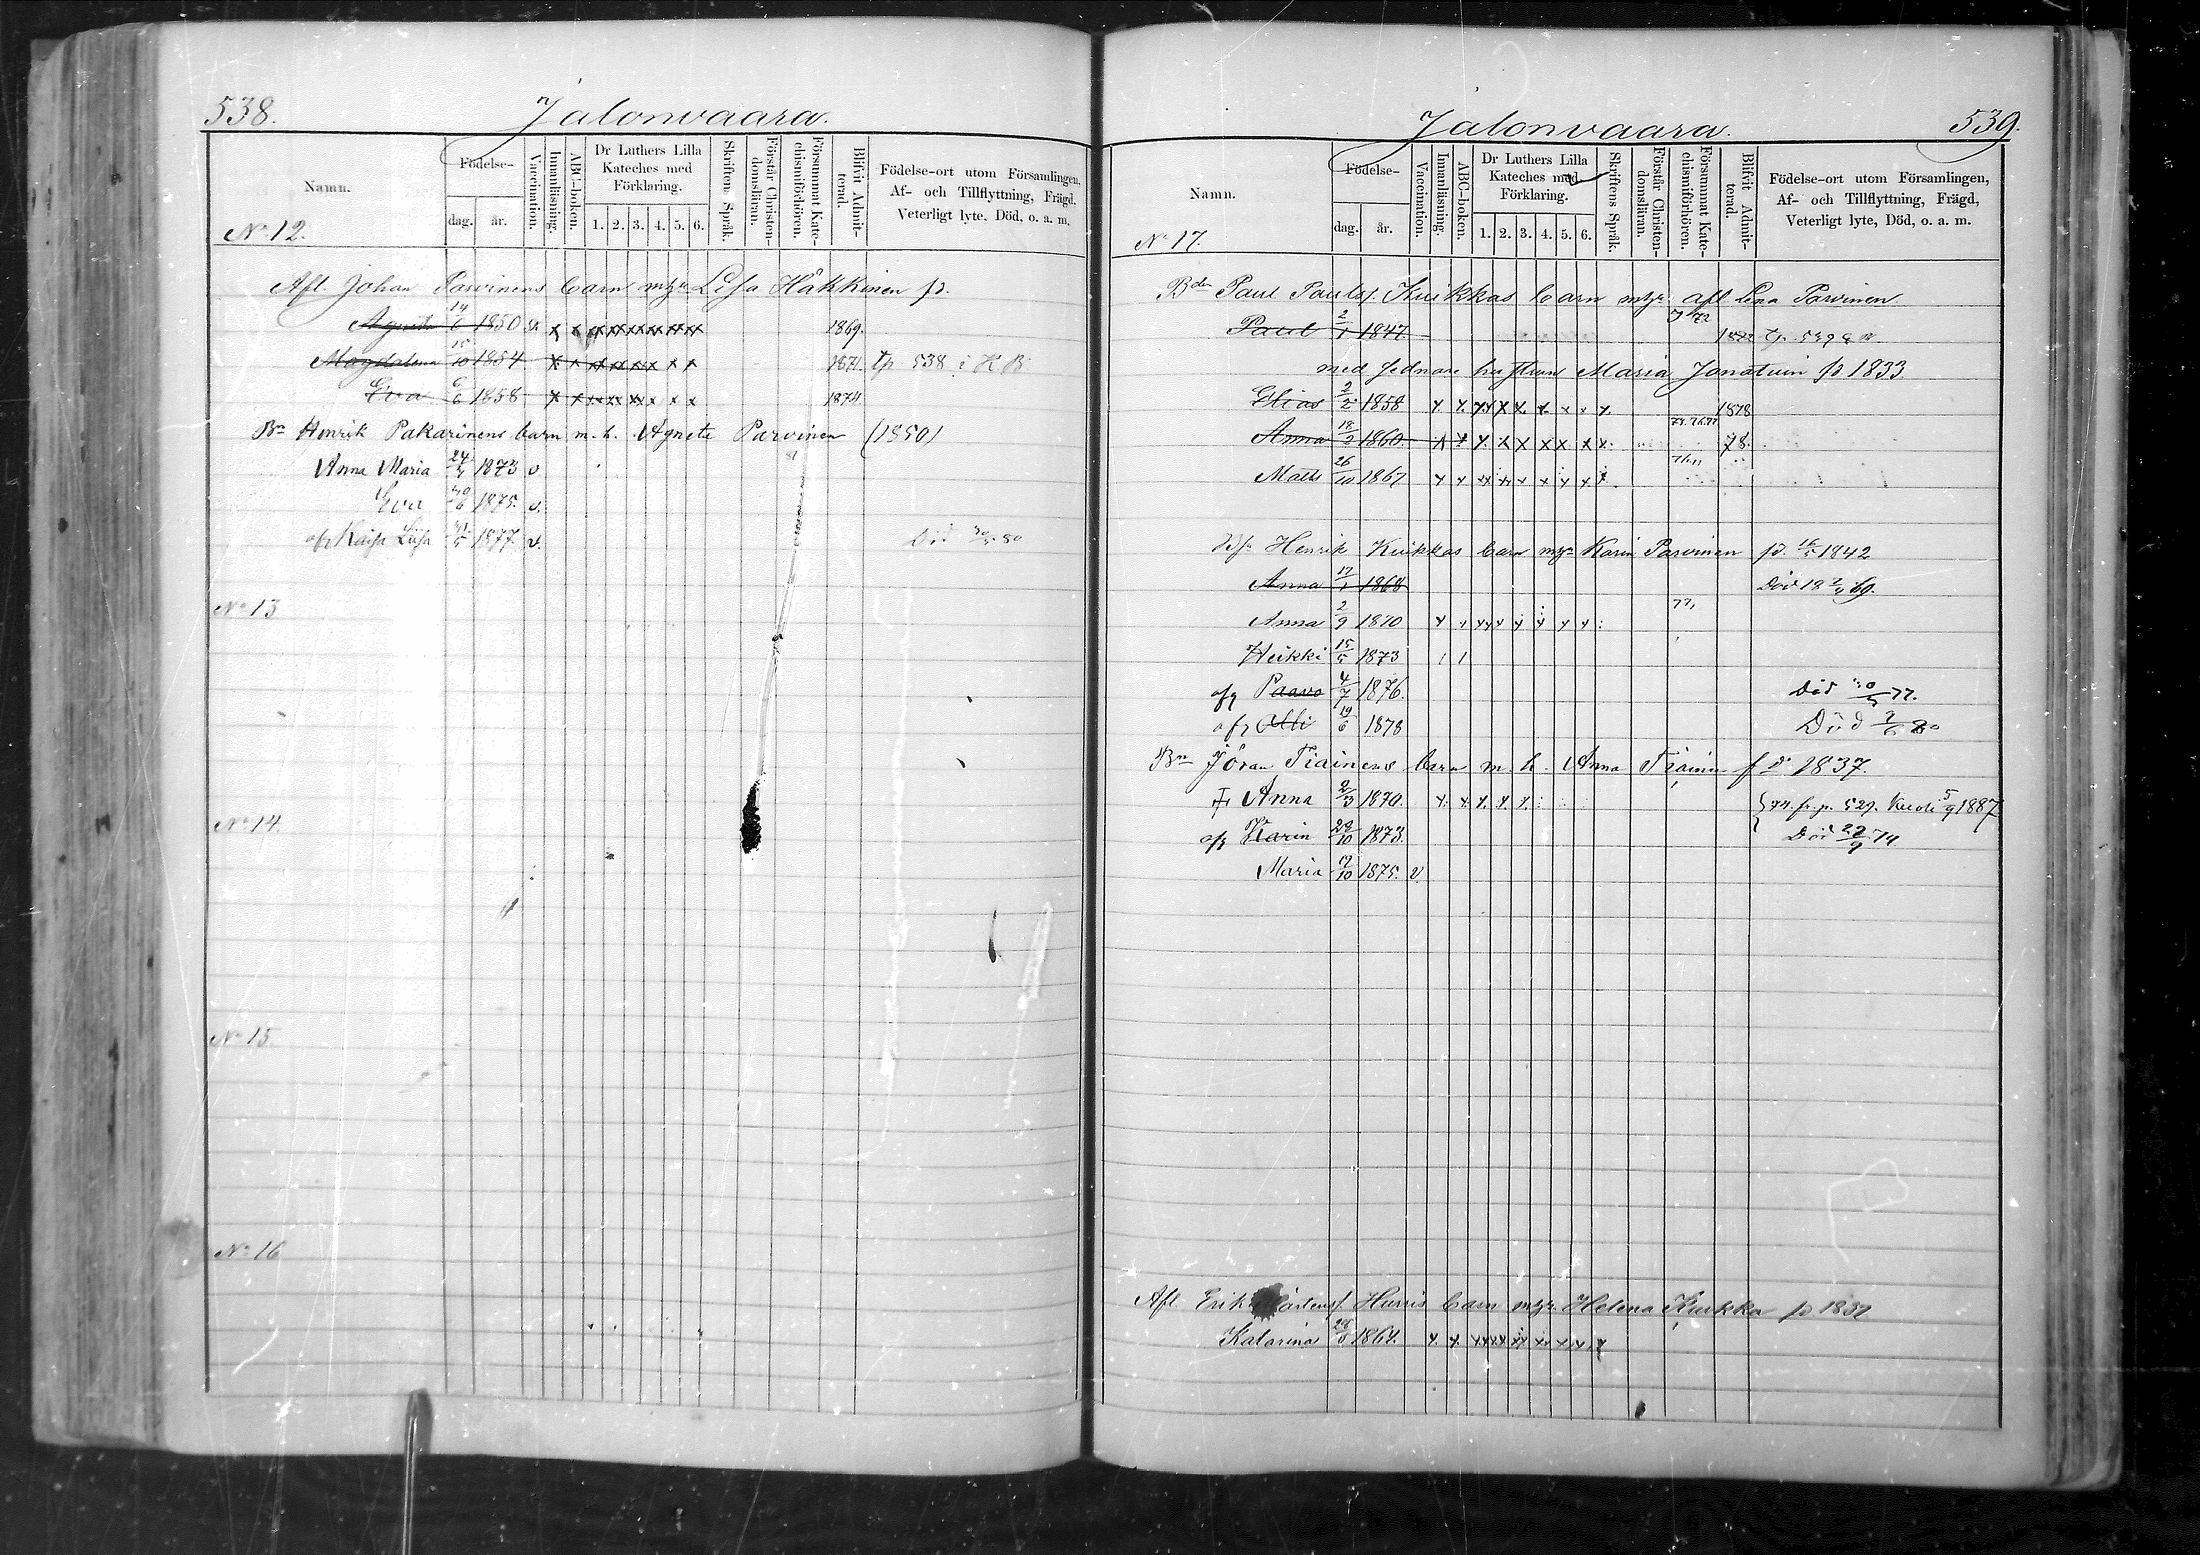 538.
Jalonvaara.
Namn.
Födelse-
dag.
år.
Vaccination.
Innanläsning.
ABC-boken.
Dr Luthers Lilla
Kateches med
Förklaring.
1. 2. 3. 4. 5. 6.
Skriftens Språk.
Förstår Christen-
domsläran.
Försummat Kate-
chismiförhören.
Blifvit Admit-
terad.
Födelse-ort utom Församlingen,
Af- och Tillflyttning, Frägd,
Veterligt lyte, Död, o. a. m.
No 12.
Afl. Johan Parvinens barn m Lisa Häkkinen
Agneta 14/6 1850 v. x x x x x x x x 1869.
Magdalena 15/10 1854 x x x x x x x x 1871. Tp 538 i K B
Eva 6/6 1858 x x x x x x x x 1874
Bn Henrik Pakarinens barn m. h. Agneta Parvinen (1850)
Anna Maria 24/4 1873 v
Eva 1875. v.
Kaisa Liisa 1877. v. Död 80
No 13
No 14.
No 15.
No 16
539.
Jalonvaara.
Namn.
Födelse-
dag.
år.
Vaccination.
Innanläsning.
ABC-boken.
Dr Luthers Lilla
Kateches med
Förklaring.
1. 2. 3. 4. 5. 6.
Skriftens Språk.
Förstår Christen-
domsläran.
Försummat Kate-
chismiförhören.
Blifvit Admit-
terad.
Födelse-ort utom Församlingen,
Af- och Tillflyttning, Frägd,
Veterligt lyte, Död, o. a. m.
No 17.
Paul Paulsf. Kuikkas barn afl Lena Parvinen
Paul 2/1 1847.
med sednare hustrun Maria Jonatuin 1833
Elias 2/2 1858 x x x x x x x x x 1878
Anna 18/2 1860 x x x x x x x x x 78.
Matts 26/10 1867 x x x x x x x x x
Henrik Kuikkas barn Karin Parvinen 1842
Anna 17/1 1868 Död 69.
Anna 2/9 1870 x x x x x x x x 77,
Heikki 15/5 1873 / /
Paavo 4/7 1876. Död 77.
19/6 1878 Död 80
Bn Jöran Tiainens barn m. h. Anna Tiainen 1837.
Anna 2/3 1870. x x x x x p. 529. Kuoli 5/9 1887
Karin 29/10 1873. Död 22/9 74
Maria 17/10 1875. v
Afl. Erik Mårtensf. Hurris barn Helena Kuikka
Katarina 1864. x x x x x x x x x